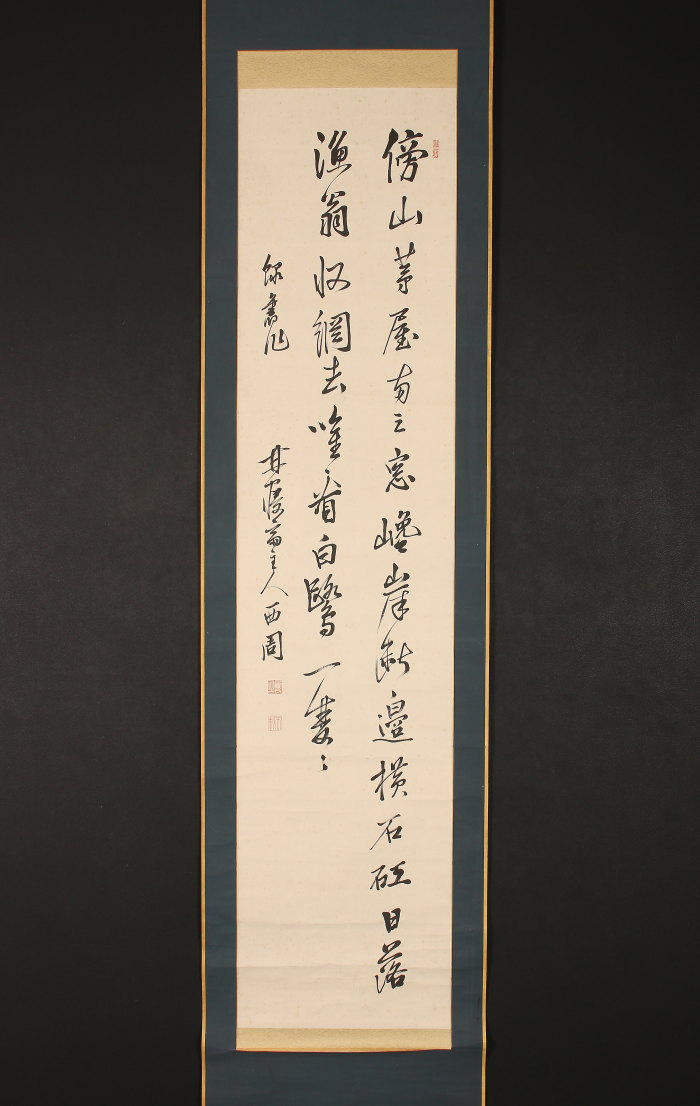 傍山茅屋両三窓巉岸断邊横石矼日落
漁翁収網去唯看白鷺一雙々
録舊作
甘寝齋主人西周